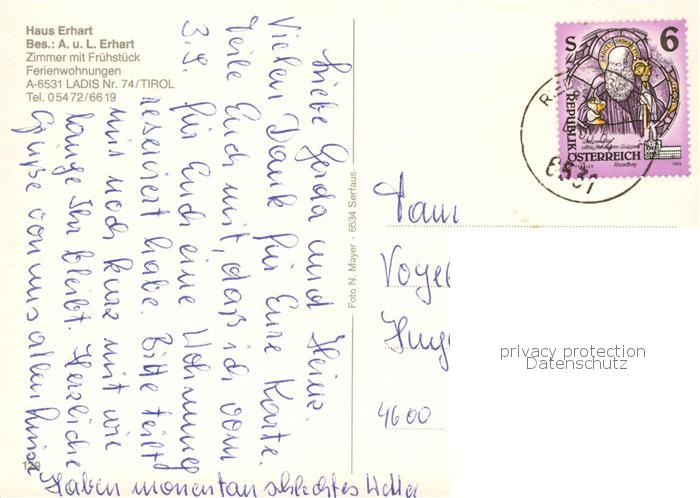 Haus Erhart
Bes.: A. u. L. Erhart
Zimmer mit Frühstück
Ferienwohnungen
A-6531 LADIS Nr. 74/TIROL
Tel. 05472/6619
Liebe Gerda und Heinz.
Vielen Dank für Eure Karte.
Teile Euch mit, daß ich vom
3.9. für Euch eine Wohnung
reserviert habe. Bitte teilt
mir noch kurz mit wie
lange Ihr bleibt. Herzliche
Grüße von uns allen
Haben momentan schlechtes Wetter
Foto N. Mayer · 6534 Serfaus
S 6
REPUBLIK
ÖSTERREICH
6531
Fam
Vogel
4600
privacy protection
Datenschutz